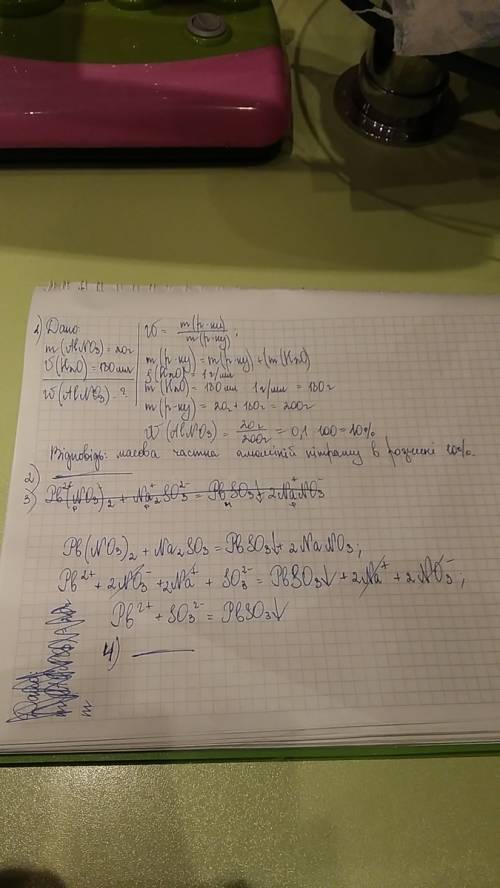 1) Дано:
m(AlNO3) = 20г
V(H2O) = 180мл
w(AlNO3) - ?
W = m(р-ну) / m(р-ну) ;
m(р-ну) = m(р-ну) + (m(H2O)
ρ(H2O) = 1г/мл
m(H2O) = 180мл · 1г/мл = 180г
m(р-ну) = 20г + 180г = 200г
W(AlNO3) = 20г / 200г = 0,1 · 100 = 10%
Відповідь: масова частка амоній нітрату в розчині 10%.
2) ———
3) Pb²⁺(NO3)⁻2 + Na⁺2SO3²⁻ = PbSO3↓ + 2Na⁺NO3⁻
Pb(NO3)2 + Na2SO3 = PbSO3↓ + 2NaNO3;
Pb²⁺ + 2NO3⁻ + 2Na⁺ + SO3²⁻ = PbSO3↓ + 2Na⁺ + 2NO3⁻;
Pb²⁺ + SO3²⁻ = PbSO3↓
4) ———
m